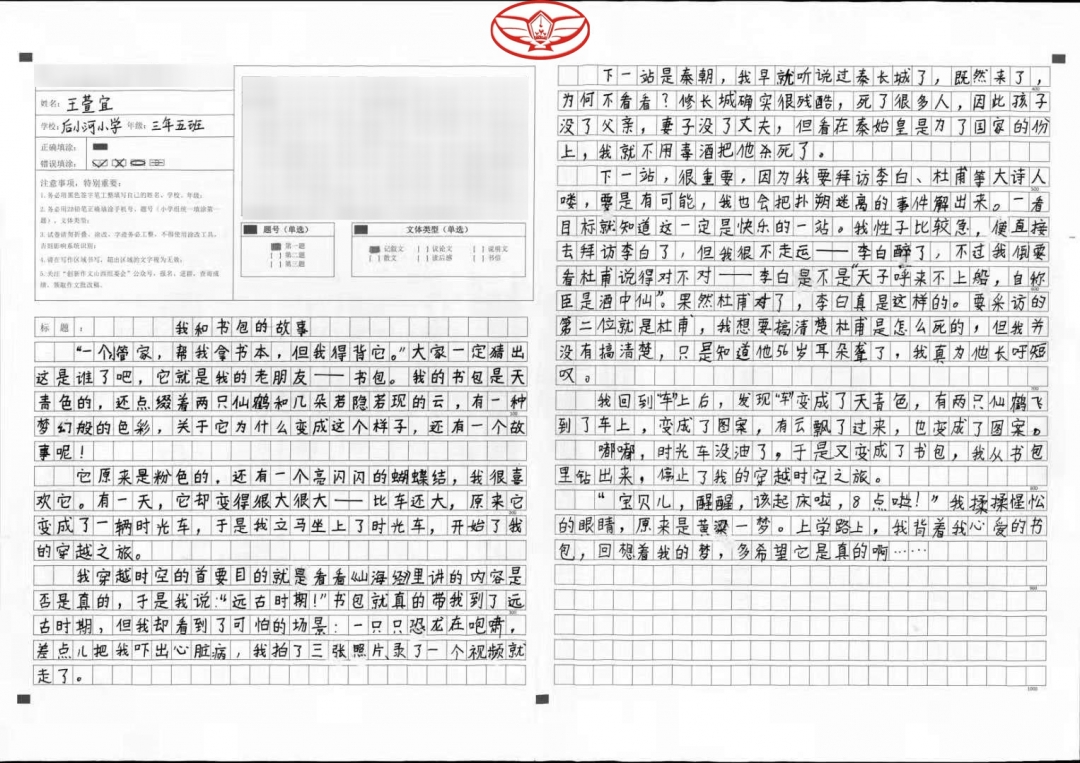 姓名：王萱宜
学校：后小河小学 年级：三年五班
正确填涂：
错误填涂：
注意事项，特别重要：
题号（单选）
第一题
第二题
第三题
文体类型（单选）
记叙文
议论文
说明文
散文
读后感
书信
标题：我和书包的故事
“一个管家，帮我拿书本，但我得背它。”大家一定猜出
这是谁了吧，它就是我的老朋友——书包。我的书包是天
青色的，还点缀着两只仙鹤和几朵若隐若现的云，有一种
梦幻般的色彩，关于它为什么变成这个样子，还有一个故
事呢！
它原来是粉色的，还有一个高闪闪的蝴蝶结，我很喜
欢它。有一天，它却变得很大很大——比车还大，原来它
变成了一辆时光车，于是我立马坐上了时光车，开始了我
的穿越之旅。
我穿越时空的首要目的就是看看《山海经》里讲的内容是
否是真的，于是我说：“远古时期！”书包就真的带我到了远
古时期，但我却看到了可怕的场景：一只只恐龙在咆啸，
差点儿把我吓出心脏病，我拍了三张照片，录了一个视频就
走了。
下一站是秦朝，我早就听说过秦长城了，既然来了，
为何不看看？修长城确实很残酷，死了很多人，因此孩子
没了父亲，妻子没了丈夫，但看在秦始皇是为了国家的份
上，我就不用毒酒把他杀死了。
下一站，很重要，因为我要拜访李白、杜甫等大诗人
喽，要是有可能，我也会把扑朔迷离的事件解出来。一看
目标就知道这一定是快乐的一站。我性子比较急，便直接
去拜访李白了，但我很不走运——李白醉了，不过我倒要
看杜甫说得对不对——李白是不是“天子呼来不上船，自称
臣是酒中仙”。果然杜甫对了，李白真是这样的。要采访的
第二位就是杜甫，我想要搞清楚杜甫是怎么死的，但我并
没有搞清楚，只是知道他56岁耳朵聋了，我真为他长吁短
叹。
我回到“车”上后，发现“车”变成了天青色，有两只仙鹤飞
到了车上，变成了图案，有云飘了过来，也变成了图案。
嘟嘟，时光车没油了，于是又变成了书包，我从书包
里钻出来，停止了我的穿越时空之旅。
“宝贝儿，醒醒，该起床啦，8点啦！”我揉揉惺忪
的眼睛，原来是黄粱一梦。上学路上，我背着我心爱的书
包，回想着我的梦，多希望它是真的啊……